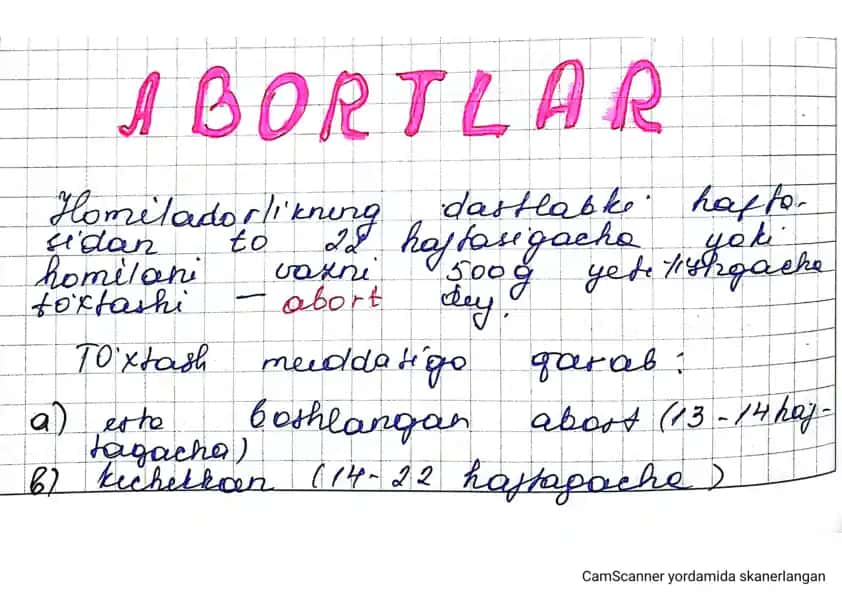 ABORTLAR
Homiladorlikning dastlabki hafta-
sidan to 22 haftasigacha yoki
homilani vaxni 500g yetilishgacha
to'xtashi – abort dey.
TO'xtash muddatiga qarab:
a) erta boshlangan abort (13-14 haf-
tagacha)
b) kechikkan (14-22 haftagacha)
CamScanner yordamida skanerlangan